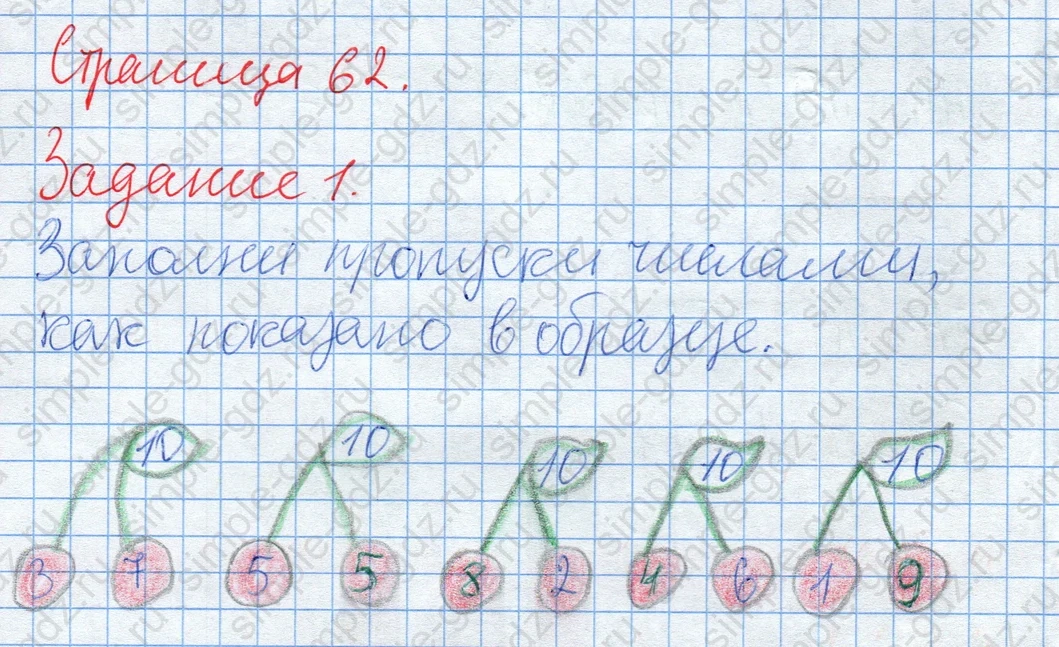 Страница 62.
Задание 1.
Заполни пропуски числами,
как показано в образце.
10 10 10 10 10
3 7 5 5 8 2 4 6 1 9
simple-gdz.ru